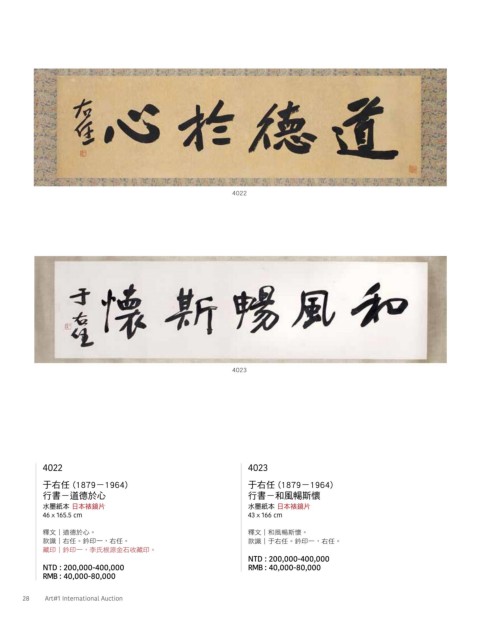 道德於心
右任
4022
和風暢斯懷
于右任
4023
4022
于右任（1879－1964）
行書－道德於心
水墨紙本 日本裱鏡片
46 x 165.5 cm
釋文｜道德於心。
款識｜右任。鈐印一、右任。
藏印｜鈐印一、李氏根源金石收藏印。
NTD : 200,000-400,000
RMB : 40,000-80,000
4023
于右任（1879－1964）
行書－和風暢斯懷
水墨紙本 日本裱鏡片
43 x 166 cm
釋文｜和風暢斯懷。
款識｜于右任。鈐印一、右任。
NTD : 200,000-400,000
RMB : 40,000-80,000
28 Art#1 International Auction